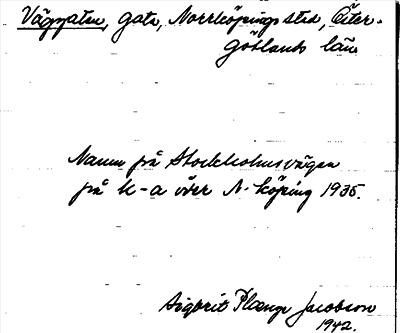 Väggatan, gata, Norrköpings stad, Öster-
götlands län
Namn på Stockholmsvägen
på k-a över N-köping 1935.
Sigbrit Plænge Jacobson
1942.